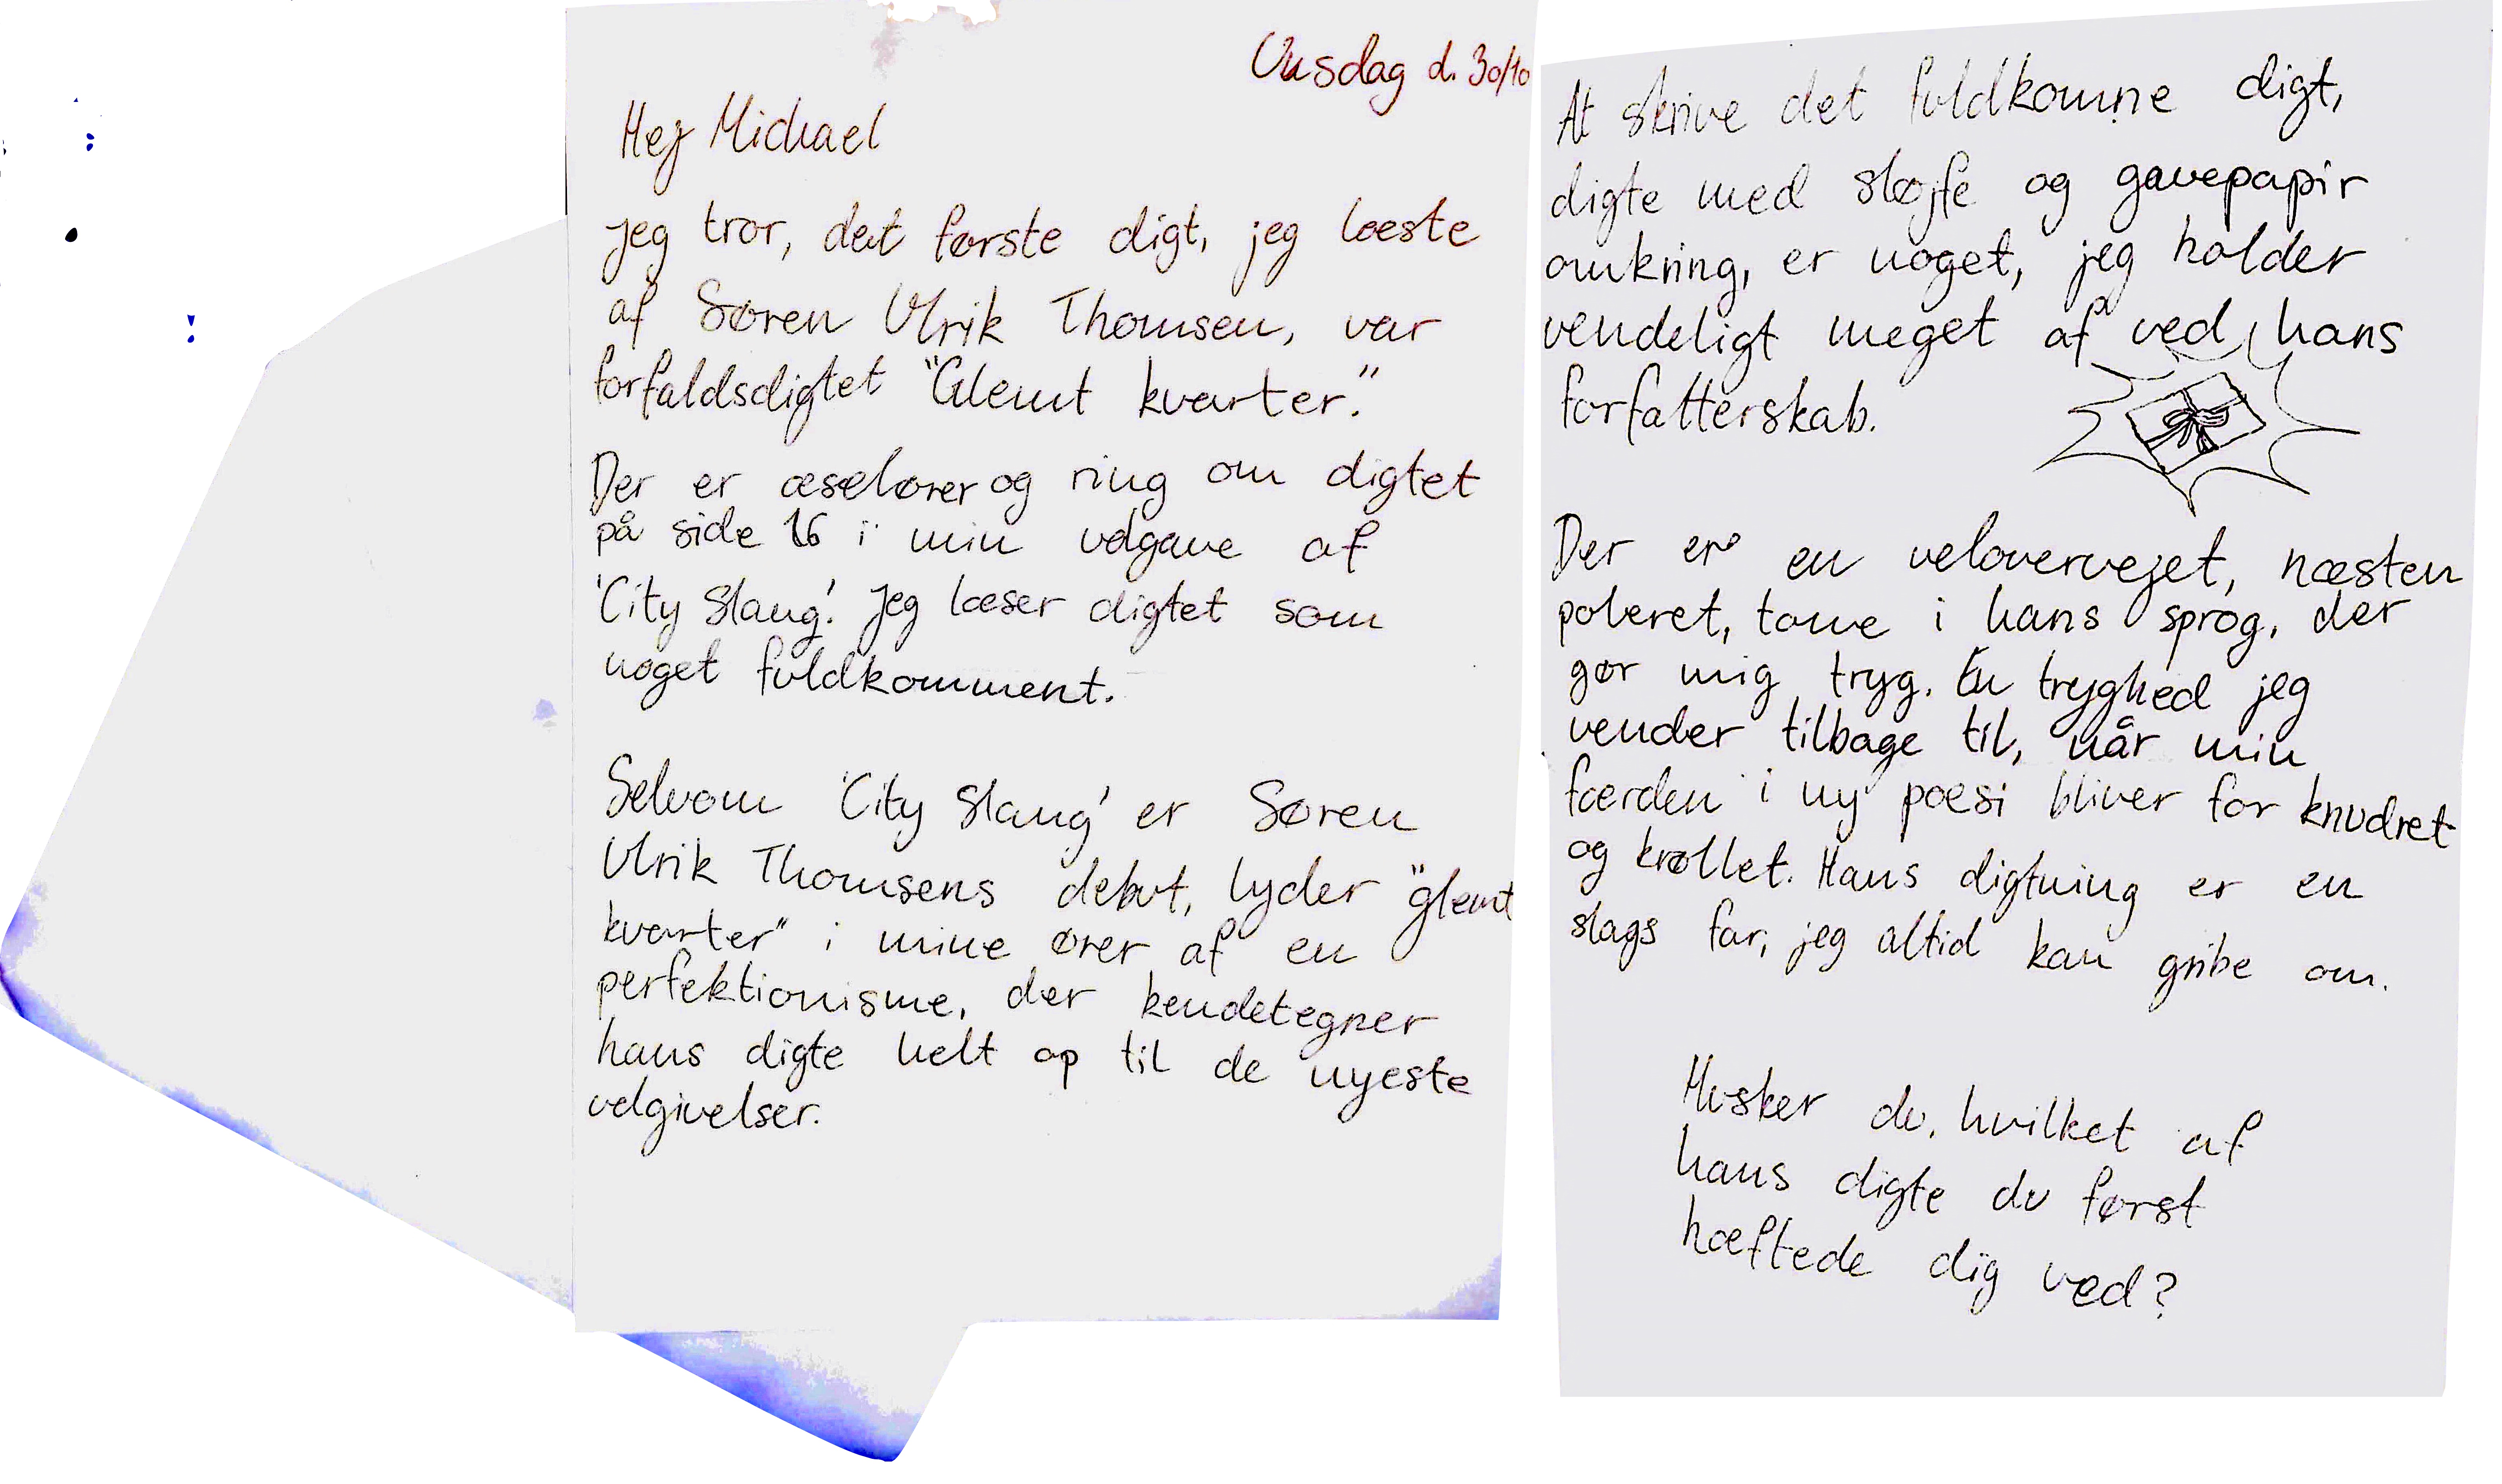 Onsdag d. 30/10
Hej Michael
Jeg tror, det første digt, jeg læste
af Søren Ulrik Thomsen, var
forfaldsdigtet "Glemt kvarter."
Der er æselører og ring om digtet
på side 16 i min udgave af
'City Slang'. Jeg læser digtet som
noget fuldkomment.
Selvom 'City Slang' er Søren
Ulrik Thomsens debut, lyder "glemt
kvarter" i mine ører af en
perfektionisme, der kendetegner
hans digte helt op til de nyeste
udgivelser.
At skrive det fuldkomne digt,
digte med sløjfe og gavepapir
omkring, er noget, jeg holder
vendeligt meget af ved hans
forfatterskab.
Der er en velovervejet, næsten
poleret, tone i hans sprog, der
gør mig tryg. En tryghed jeg
vender tilbage til, når min
færden i ny poesi bliver for knudret
og krøllet. Hans digtning er en
slags far, jeg altid kan gribe om.
Husker du, hvilket af
hans digte du først
hæftede dig ved?